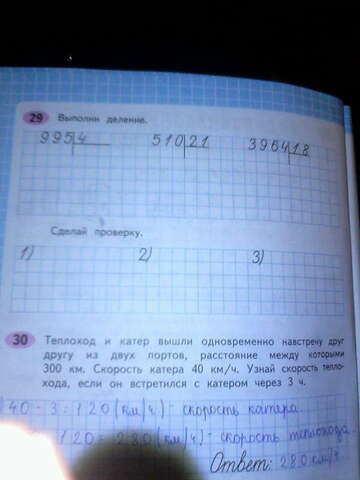 29 Выполни деление.
995 4 510 21 3964 18
Сделай проверку.
1) 2) 3)
30 Теплоход и катер вышли одновременно навстречу друг
другу из двух портов, расстояние между которыми
300 км. Скорость катера 40 км/ч. Узнай скорость тепло-
хода, если он встретился с катером через 3 ч.
40 · 3 = 120 (км/ч) - скорость катера.
120 = 280 (км/ч) - скорость теплохода.
Ответ: 280 км/ч.